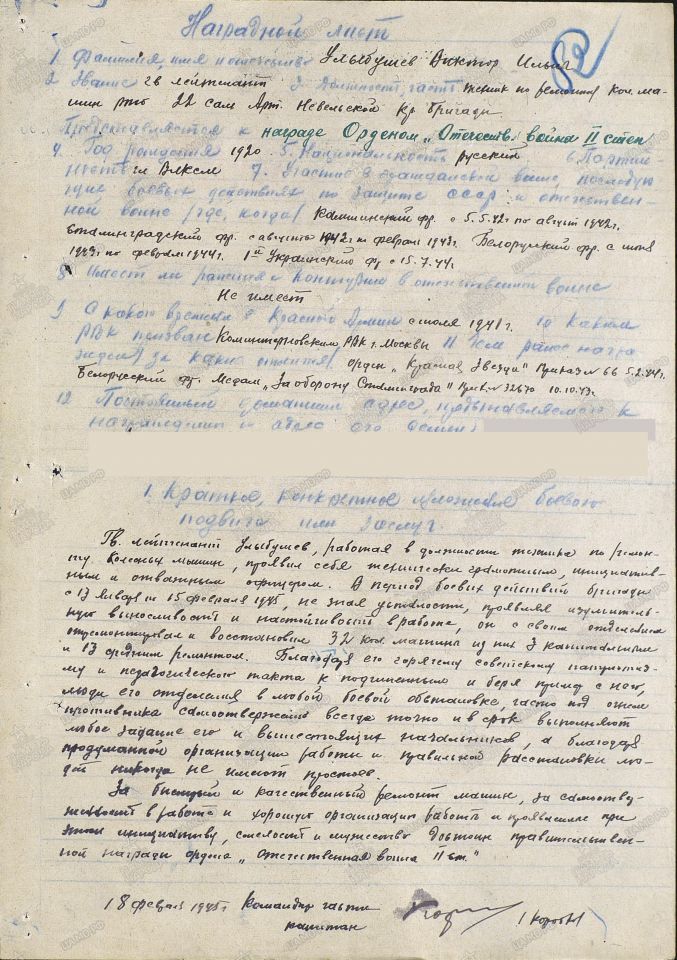 82
Наградной лист
1 Фамилия, имя и отчество Улыбушев Виктор Ильич
2 Звание гв лейтенант 3 Должность, часть техник по ремонту кол. ма-
шин рто 22 сам Арт. Невельской Кр бригады
Представляется к награде Орденом „Отечеств. война II степ
4 Год рождения 1920 5. Национальность русский 6 Партий-
ность чл ВЛКСМ 7. Участие в гражданской войне, последую
щие боевых действиях по защите СССР и отечествен-
ной войне /где, когда/ Калининский фр. с 5.5.42г по август 1942г.
Сталинградский фр. с августа 1942г. по феврал 1943г. Белорусский фр. с июня
1943г. по февраль 1944г. 1й Украинский фр с 15.7.44г.
8 Имеет ли ранения и контузии в отечественной войне
Не имеет
9 С какого времени в Красной Армии с июля 1941г. 10 Каким
РВК призван Коминтерновским РВК г. Москвы 11 Чем ранее награ
жден /за какие отличия/ орден „Красная Звезда" Приказ № 66 5.2.44г.
Белорусский фр. Медаль „За оборону Сталинграда" 10.10.43г.
12 Постоянный домашний адрес, представляемого к
награждению и адрес его семьи
1. Краткое, конкретное изложение боевого
подвига или заслуг.
Гв. лейтенант Улыбушев, работая в должности техника по ремон-
ту колесных машин, проявил себя технически грамотным, инициатив-
ным и отважным офицером. В период боевых действий бригады
с 13 января по 15 февраля 1945, не зная усталости, проявляя изумитель-
ную выносливость и настойчивость в работе, он с своим отделением
отремонтировал и восстановил 32 кол. машины из них 3 капитальным
и 13 средним ремонтом. Благодаря его горячему советскому патриотиз-
му и педагогического такта к подчиненным и беря пример с него,
люди его отделения в любой боевой обстановке, часто под огнем
противника самоотверженно всегда точно и в срок выполняют
любое задание его и вышестоящих начальников, а благодаря
продуманной организации работы и правильной расстановки лю-
дей никогда не имеют простоев.
За быстрый и качественный ремонт машин, за самоотвер-
женность в работе и хорошую организацию работы и проявленные при
этом инициативу, смелость и мужество достоин правительствен-
ной награды ордена „Отечественная война II ст."
18 февраля 1945г Командир части
капитан